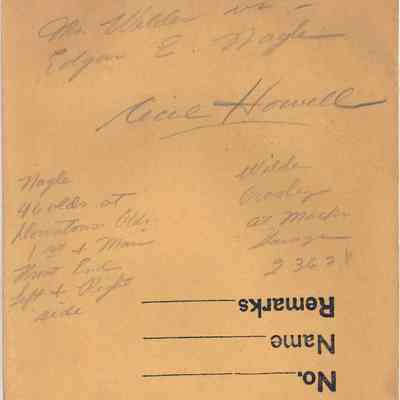 Mr. Wilder vs -
Edgar E. Nagle
Cecil Howell
Nagle
46 Olds at
Downtown Olds.
1 st & Main
Front End
Left & Right
side
Wilder
Crosley
at
Garage
2363
Remarks
Name
No.